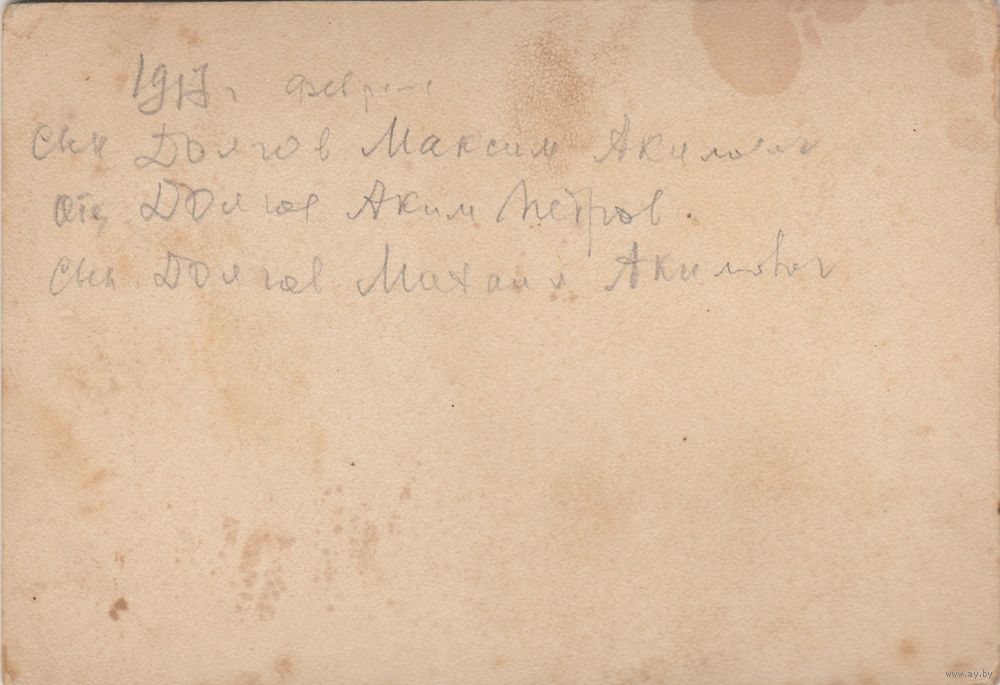 1917 г февраль
Сын Долгов Максим Акимович
Отец Долгов Аким Петров.
Сын Долгов Михаил Акимович
www.ay.by